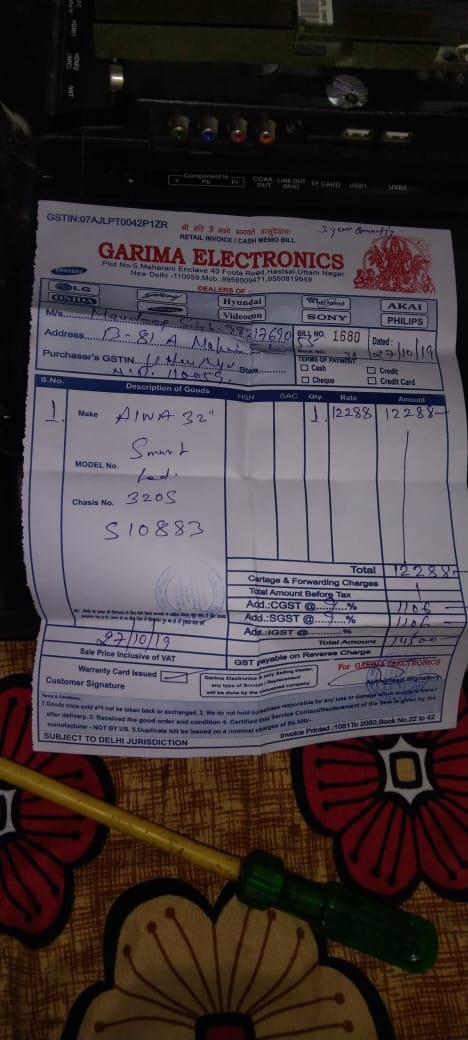 HDMI2
HDMI1
(ARC)
ANT
Component In
Y Pb Pr
COAX OUT
LINE OUT
TF CARD
USB1
USB2
GSTIN:07AJLPT0042P1ZR
श्री हरि ॐ नमो भगवते वासुदेवायः
3 year
RETAIL INVOICE / CASH MEMO BILL
GARIMA ELECTRONICS
Plot No-5,Maharani Enclave 40 Foota Road,Hastsal,Uttam Nagar
New Delhi -110059,Mob.:9958009471,9560819649
DEALERS OF
SAMSUNG
LG
ONIDA
Godrej
Hyundai
Videocon
Whirlpool
SONY
AKAI
PHILIPS
M/s.
Address. B-81 A
Purchaser's GSTIN.
State
BILL NO. 1680
Book NO.
Dated : 27/10/19
TERMS OF PAYMENT
Cash
Credit
Cheque
Credit Card
S.No. Description of Goods HSN SAC Qty. Rate Amount
1. Make AIWA 32" 1 12288 12288-
Smart
MODEL No. Led.
Chasis No. 320S
S10883
Total 12288-
Cartage & Forwarding Charges
Total Amount Before Tax
Add.:CGST @ 9 % 1106-
Add.:SGST @ 9 % 1106-
Add.:IGST @ %
Total Amount 14500-
27/10/19
Sale Price Inclusive of VAT
GST payable on Reverse Charge
Warranty Card Issued
Customer Signature
Garima Electronics is only Selling Dealer,
any type of Service / Replacement
will be done by the concerned company
For GARIMA ELECTRONICS
Authorised Signatory
Terms & Conditions :
1.Goods once sold will not be taken back or exchanged. 2. We do not hold ourselves responsible for any loss or damage
after delivery. 3. Received the good order and condition 4. Certified that Service Contact/replacement of the item is given by the
manufacturer - NOT BY US. 5.Duplicate bill be issued on a nominal charges of Rs.500/-
Invoice Printed :1051To 2050,Book No.22 to 42
SUBJECT TO DELHI JURISDICTION